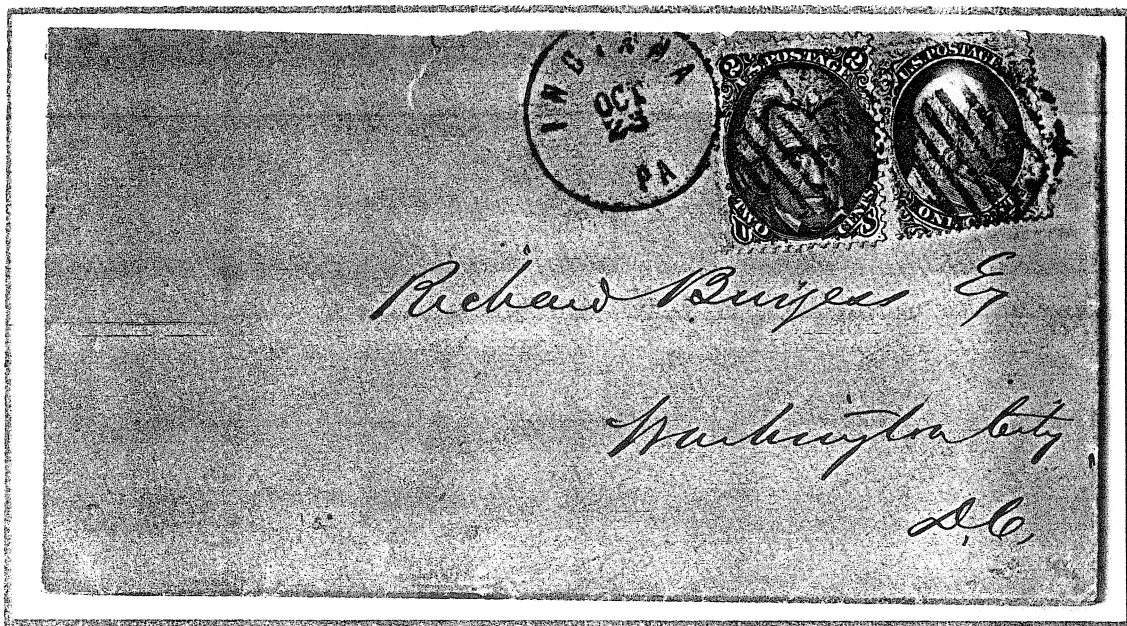 INDIANA
OCT
23
PA
2 U.S. POSTAGE 2
U TWO CENTS S
U.S. POSTAGE
ONE CENT
Richard Burgess Esq
Washington City
D.C.